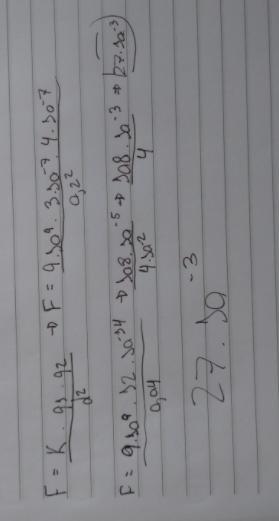 F = K · q1 · q2 / d² → F = 9·10⁹ · 3·10⁻⁷ · 4·10⁻⁷ / 0,2²
F = 9·10⁹ · 12 · 10⁻¹⁴ / 0,04 → 108 · 10⁻⁵ / 4·10⁻² → 108 · 10⁻³ / 4 → 27·10⁻³
27 · 10⁻³